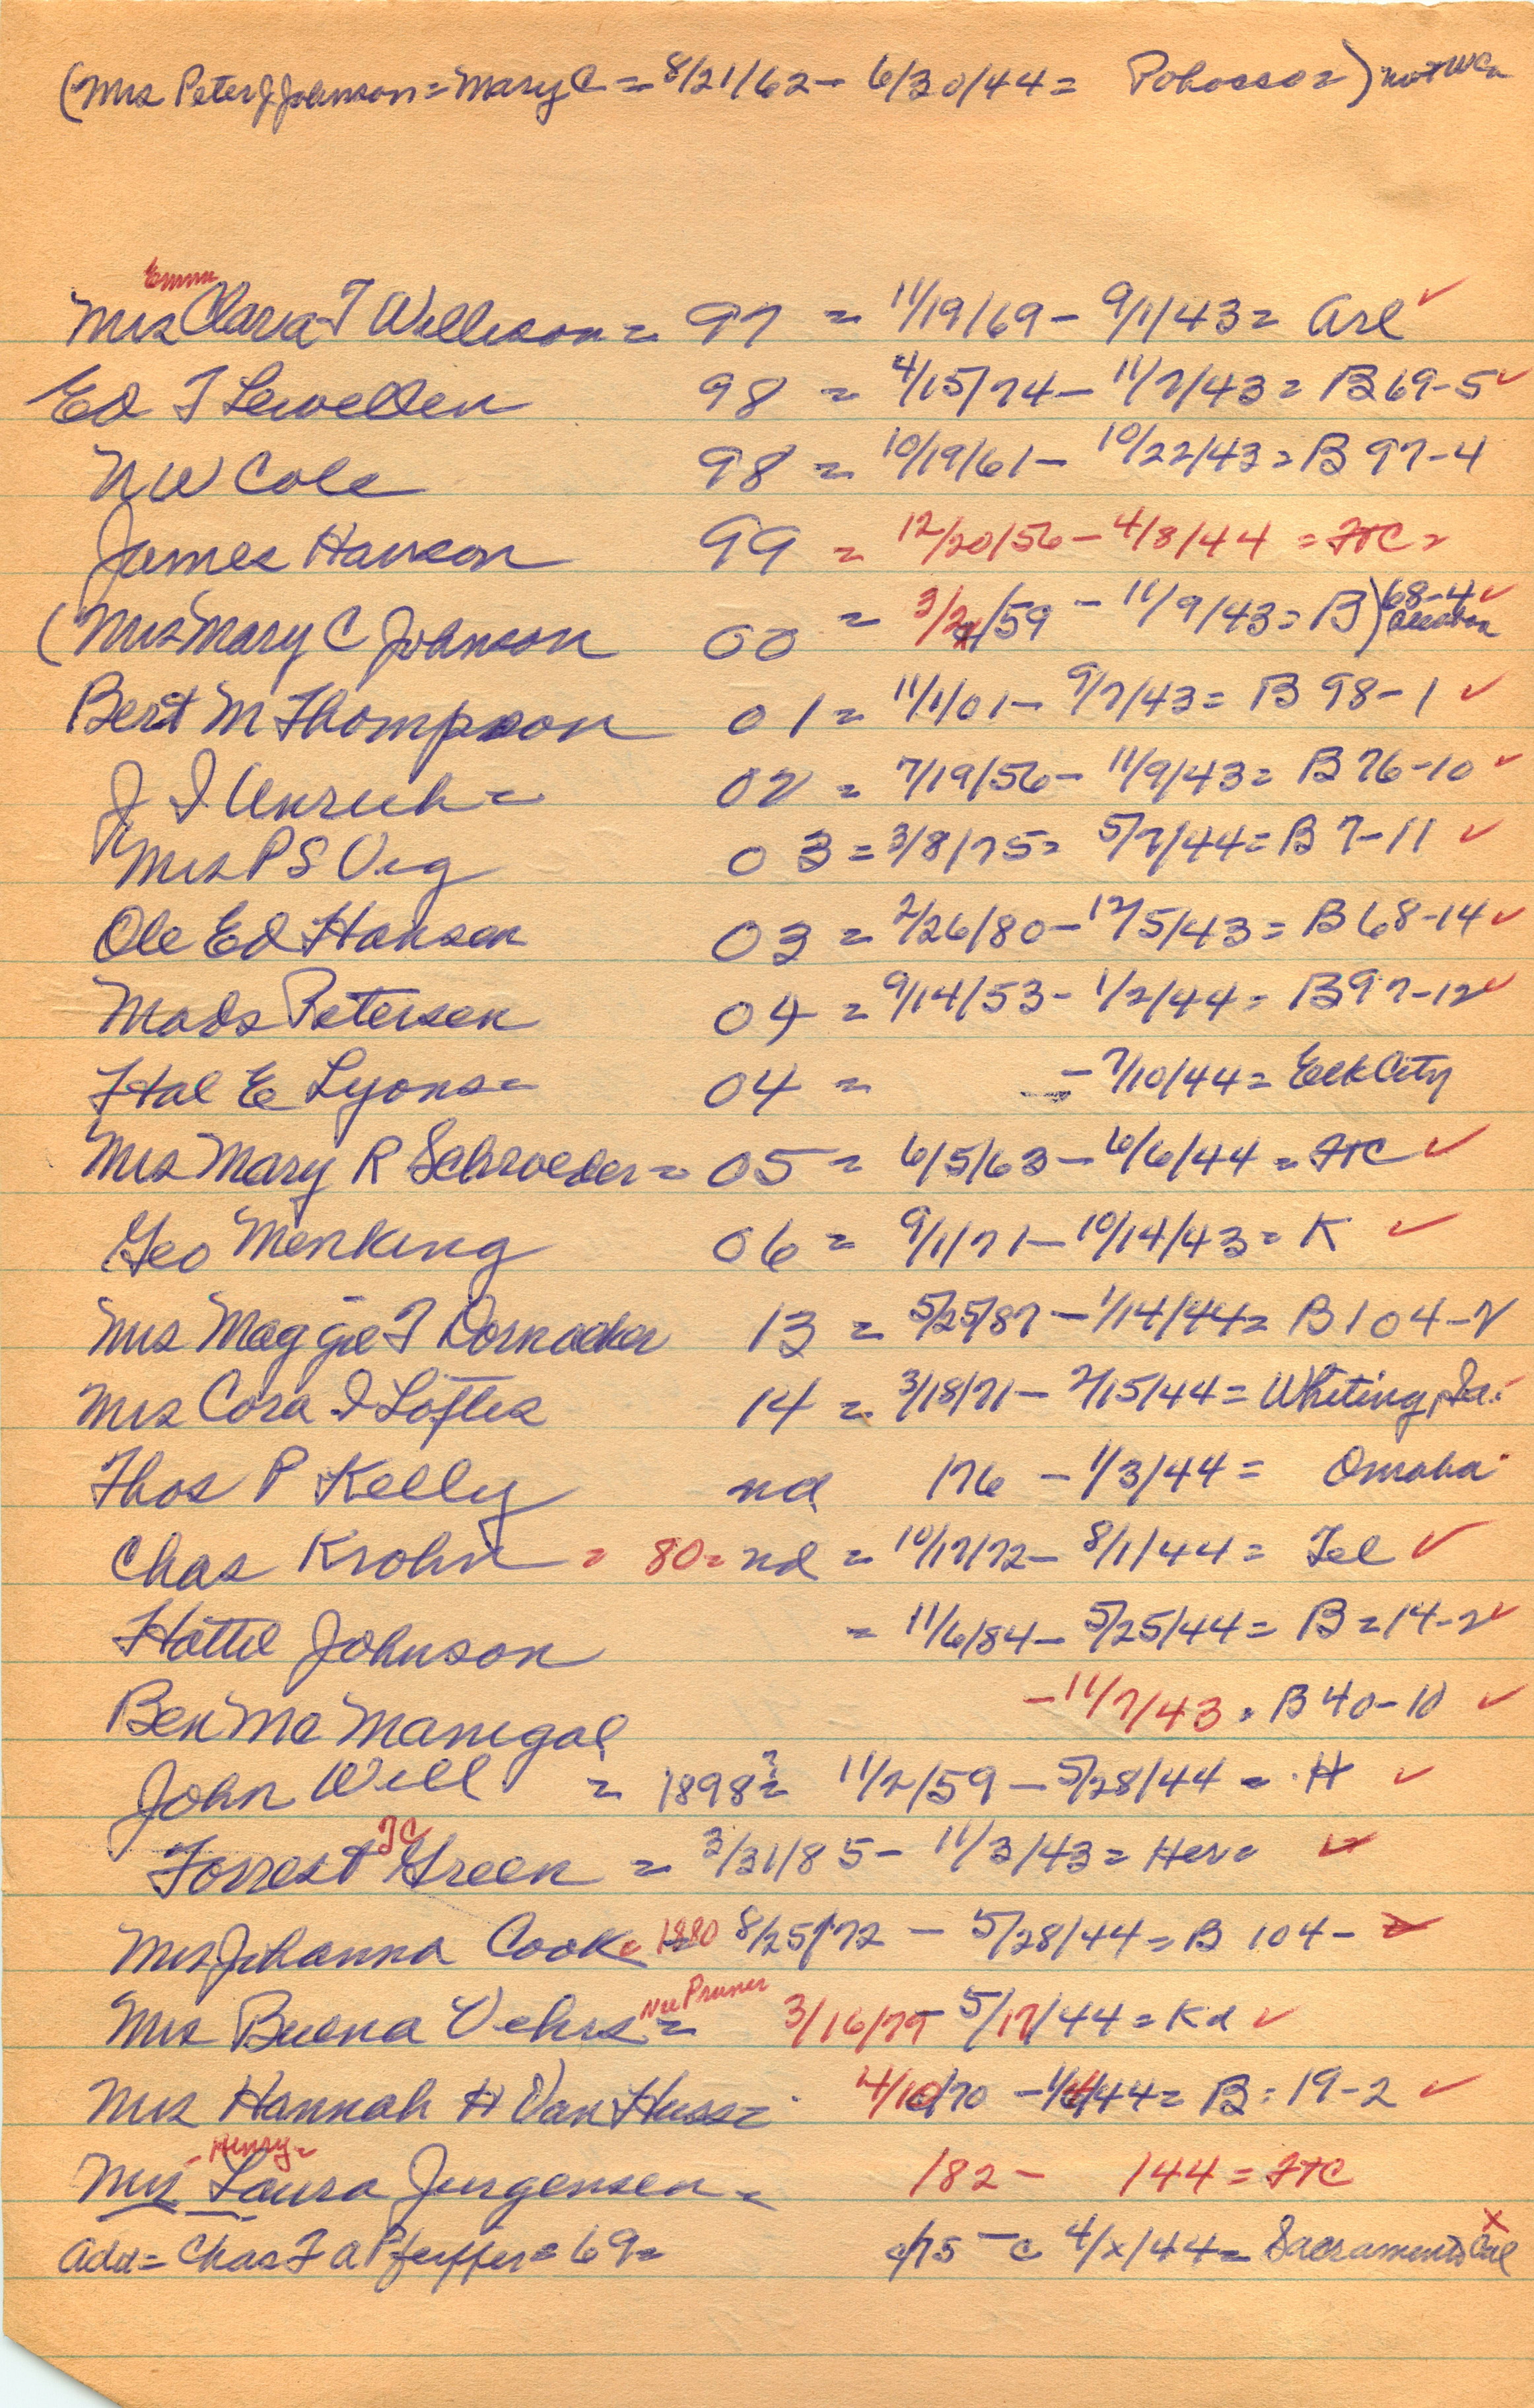 (Mrs Peter J Johnson = Mary C = 8/21/62 - 6/30/44 = ) not WCn
Emma
Mrs Clara T Willison = 97 = 11/19/69 - 9/1/43 = Arl ✓
Ed T Lewellen 98 = 4/15/74 - 11/7/43 = B 69-5 ✓
N W Cole 98 = 10/19/61 - 10/22/43 = B 97-4
James Hanson 99 = 12/20/56 - 4/8/44 = FTC =
(Mrs Mary C Johnson 00 = 3/2/59 - 11/9/43 = B) 68-4 ✓
Bert M Thompson 01 = 11/1/01 - 9/7/43 = B 98-1 ✓
J I Unruh = 02 = 7/19/56 - 11/9/43 = B 76-10 ✓
Mrs P S Vig 03 = 3/8/75 = 5/7/44 = B 7-11 ✓
Ole Ed Hansen 03 = 2/26/80 - 12/5/43 = B 68-14 ✓
Mads Petersen 04 = 9/14/53 - 1/2/44 = B 97-12 ✓
Hal E Lyons = 04 = - 7/10/44 = Elk City
Mrs Mary R Schroeder = 05 = 6/5/63 - 6/6/44 = FTC ✓
Geo Menking 06 = 9/1/71 - 10/14/43 = K ✓
Mrs Maggie T Dornacker 13 = 5/25/87 - 1/14/44 = B 104-2
Mrs Cora I Loftis 14 = 3/18/71 - 2/15/44 = Whiting, Ia. ✓
Thos P Kelly nd 176 - 1/3/44 = Omaha
Chas Krohn = 80 = nd = 10/17/72 - 8/1/44 = Tek ✓
Hattie Johnson = 11/6/84 - 5/25/44 = B = 14-2 ✓
Ben Mc Manigal - 11/7/43 = B 40-10 ✓
John Will = 1898? = 11/2/59 - 5/28/44 = H ✓
TC
Forrest Green = 3/31/85 - 11/3/43 = Her = ✓
Mrs Johanna Cook = 1880 8/25/72 - 5/28/44 = B 104-
Nee Pruner
Mrs Buena Vehrs = 3/16/79 5/17/44 = Kd ✓
Mrs Hannah H Van Huss = 4/10/70 - 1/4/44 = B = 19-2 ✓
Henry =
Mrs Laura Jurgensen = 182 - 144 = FTC
Add = Chas F A Pfeiffer = 69 = c/75 - c 4/x/44 = Sacramento Cal X